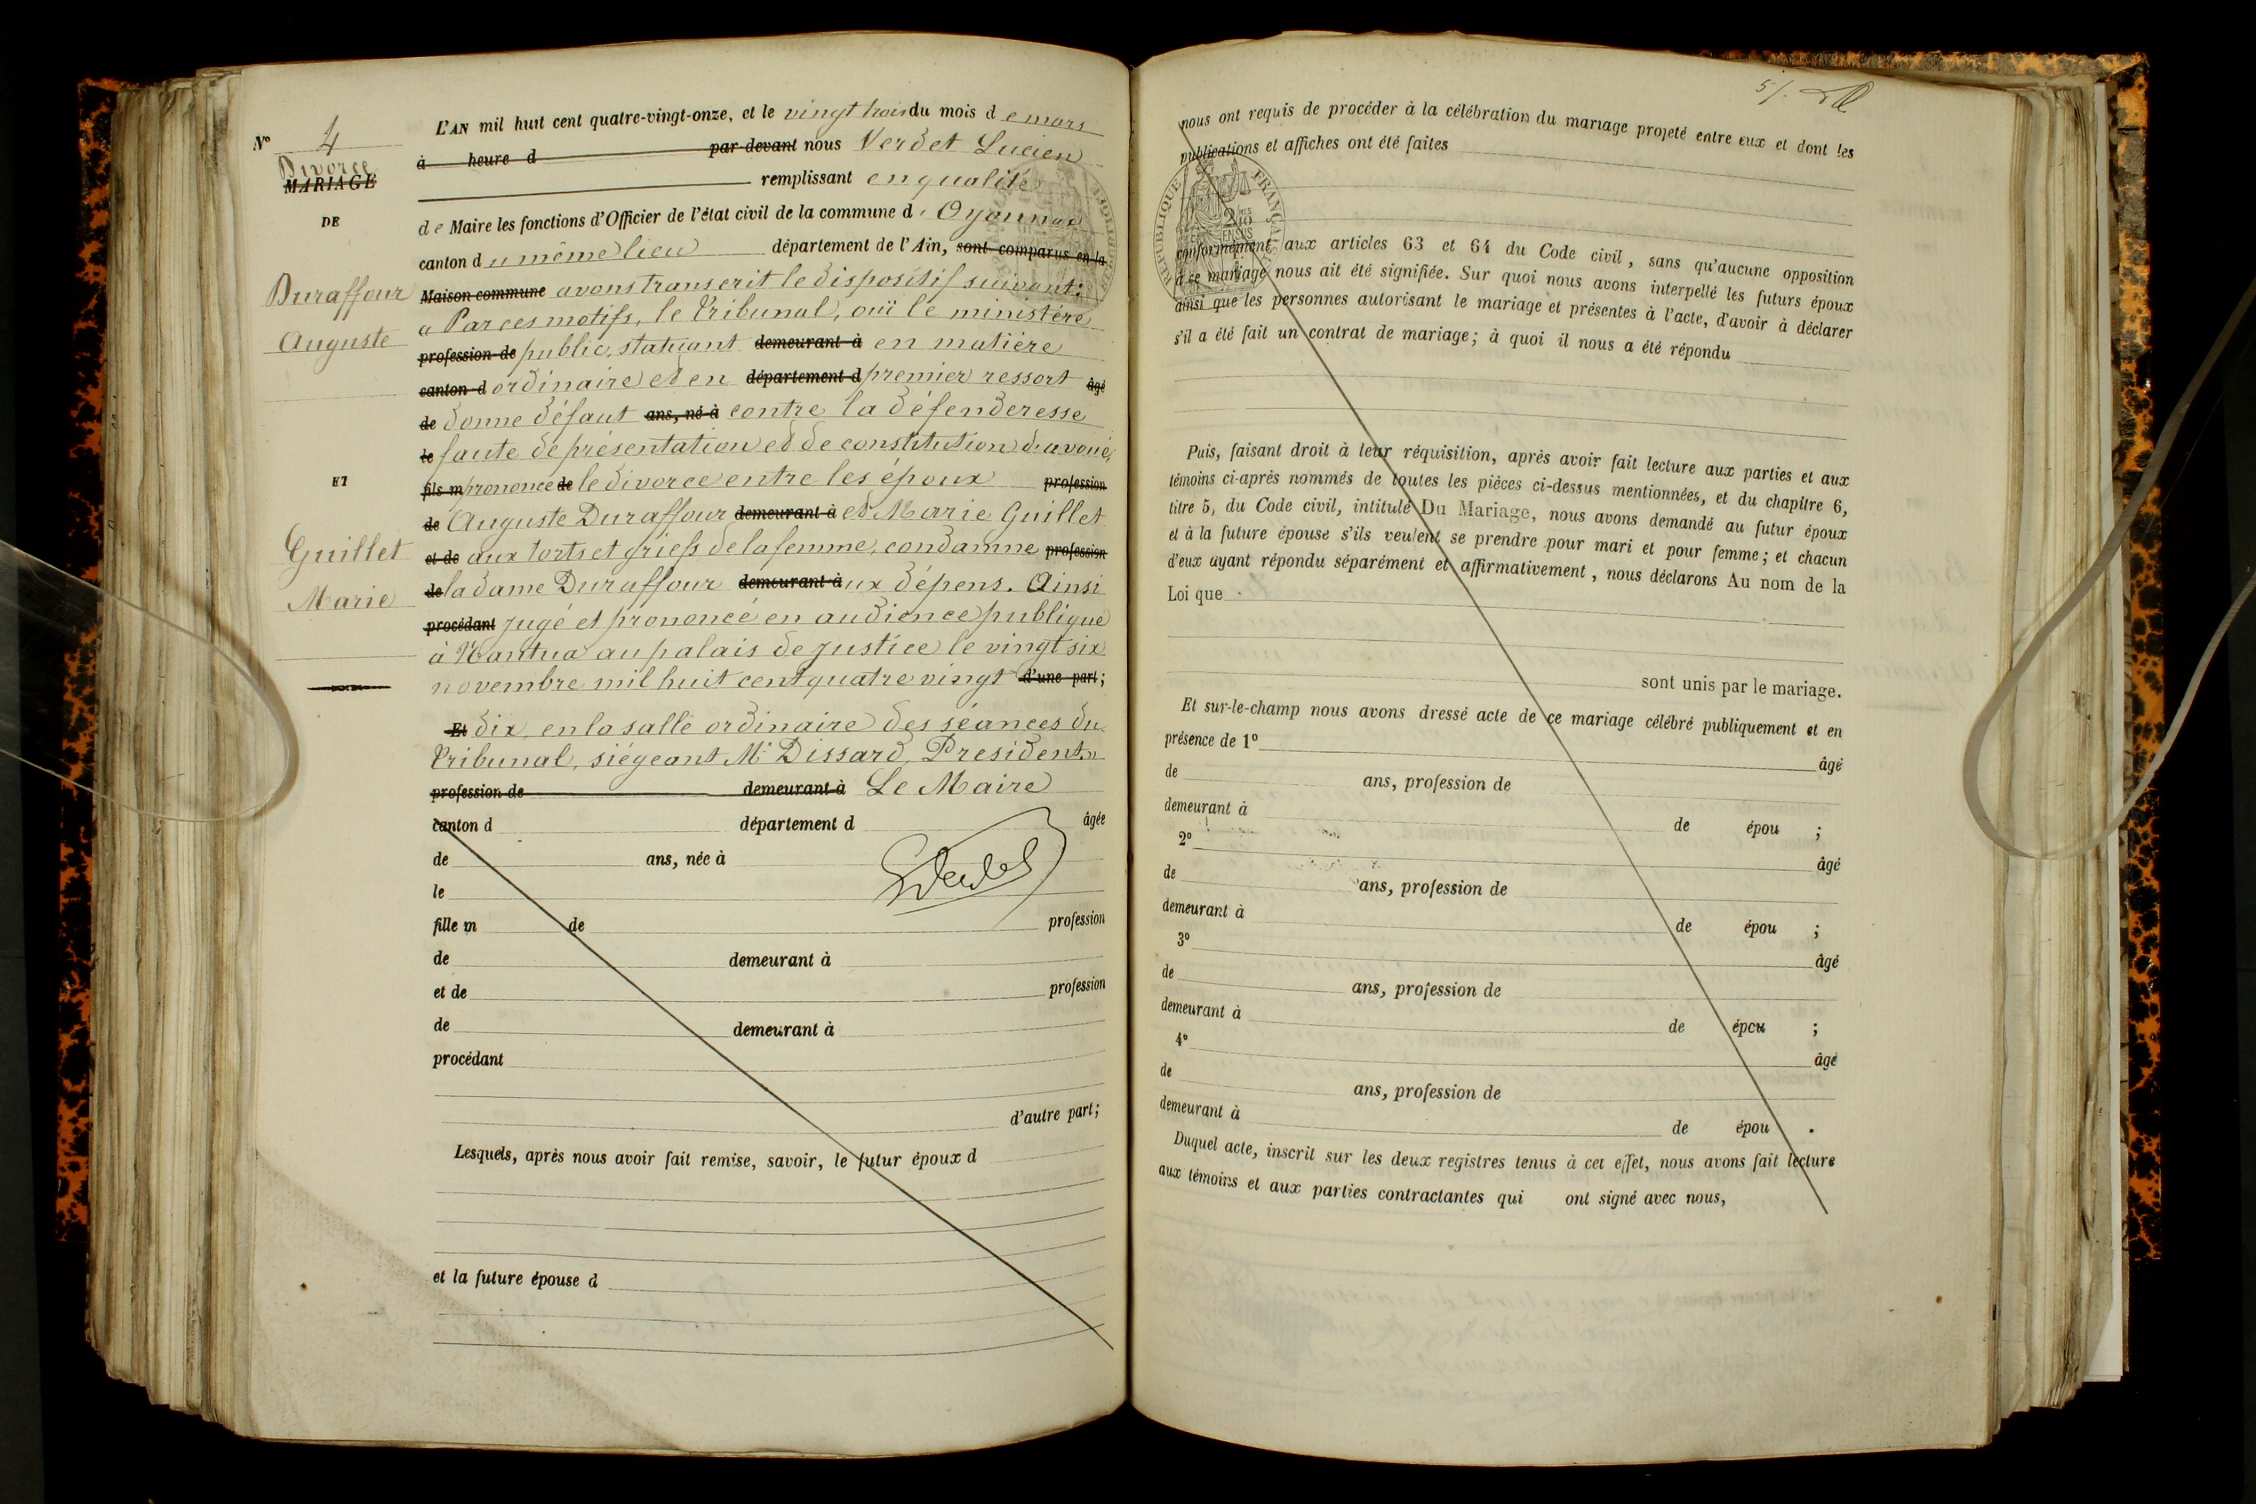 L'AN mil huit cent quatre-vingt-onze, et le vingt trois du mois d e mars
N° 4
à heure d par devant nous Verdet Lucien
Divorce
MARIAGE
remplissant en qualité
DE
de Maire les fonctions d'Officier de l'état civil de la commune d' Oyonnax
canton du même lieu département de l'Ain, sont comparus en la
Duraffour
Maison commune avons transcrit le dispositif suivant:
Auguste
« Par ces motifs, le Tribunal, ouï le ministère
profession de public, statuant demeurant à en matière
canton d ordinaire et en département d premier ressort âgé
de donne défaut ans, né à contre la défenderesse
le faute de présentation et de constitution d'avoué,
ET
fils m prononce de le divorce entre les époux profession
de Auguste Duraffour demeurant à et Marie Guillet
Guillet
et de aux torts et griefs de la femme, condamne profession
Marie
de la dame Duraffour demeurant à ux dépens. Ainsi
procédant jugé et prononcé en audience publique
à Nantua au palais de justice le vingt six
novembre mil huit cent quatre vingt d'une part;
Et dix, en la salle ordinaire des séances du
Tribunal, siégeant Mr Dissard, Président. »
profession de demeurant à Le Maire
canton d département d âgée
de ans, née à
LVerdet
le
fille m de profession
de demeurant à
et de profession
de demeurant à
procédant
d'autre part;
Lesquels, après nous avoir fait remise, savoir, le futur époux d
et la future épouse d
51.
nous ont requis de procéder à la célébration du mariage projeté entre eux et dont les
publications et affiches ont été faites
RÉPUBLIQUE FRANÇAISE
conformément aux articles 63 et 64 du Code civil, sans qu'aucune opposition
à ce mariage nous ait été signifiée. Sur quoi nous avons interpellé les futurs époux
ainsi que les personnes autorisant le mariage et présentes à l'acte, d'avoir à déclarer
s'il a été fait un contrat de mariage; à quoi il nous a été répondu
Puis, faisant droit à leur réquisition, après avoir fait lecture aux parties et aux
témoins ci-après nommés de toutes les pièces ci-dessus mentionnées, et du chapitre 6,
titre 5, du Code civil, intitulé Du Mariage, nous avons demandé au futur époux
et à la future épouse s'ils veulent se prendre pour mari et pour femme; et chacun
d'eux ayant répondu séparément et affirmativement, nous déclarons Au nom de la
Loi que
sont unis par le mariage.
Et sur-le-champ nous avons dressé acte de ce mariage célébré publiquement et en
présence de 1° âgé
de ans, profession de
demeurant à de épou ;
2° âgé
de ans, profession de
demeurant à de épou ;
3° âgé
de ans, profession de
demeurant à de épou ;
4° âgé
de ans, profession de
demeurant à de épou .
Duquel acte, inscrit sur les deux registres tenus à cet effet, nous avons fait lecture
aux témoins et aux parties contractantes qui ont signé avec nous,